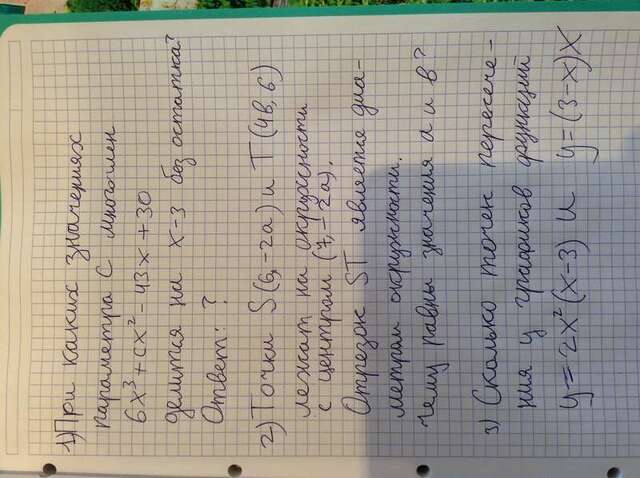 1) При каких значениях
параметра C многочлен
6x³ + cx² - 43x + 30
делится на x-3 без остатка?
Ответ: ?
2) Точки S(6,-2a) и T(4в, 6)
лежат на окружности
с центром (7,-2a).
Отрезок ST является диа-
метром окружности.
Чему равны значения a и в?
3) Сколько точек пересече-
ния у графиков функций
y = 2x²(x-3) и y = (3-x)x